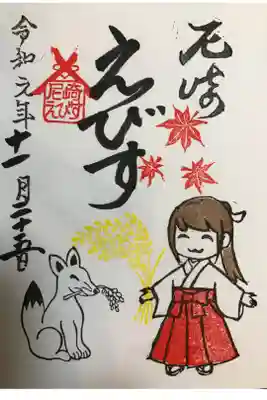 尼崎
えびす
尼崎
えびす
令和元年十一月二十五日